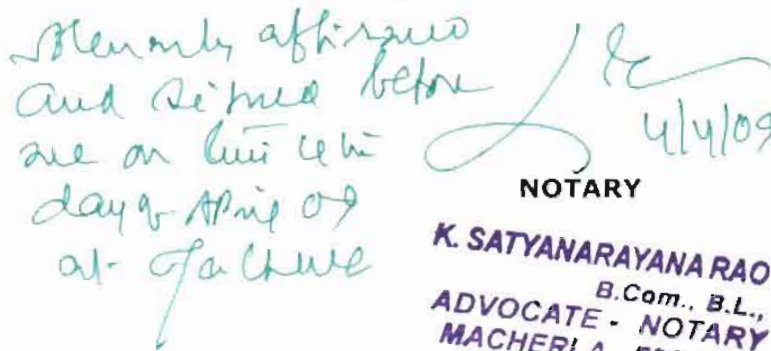 Solemnly affirmed
and signed before
me on this 4th
day of April 09
at Macherla
4/4/09
NOTARY
K. SATYANARAYANA RAO
B.Com., B.L.,
ADVOCATE - NOTARY
MACHERLA